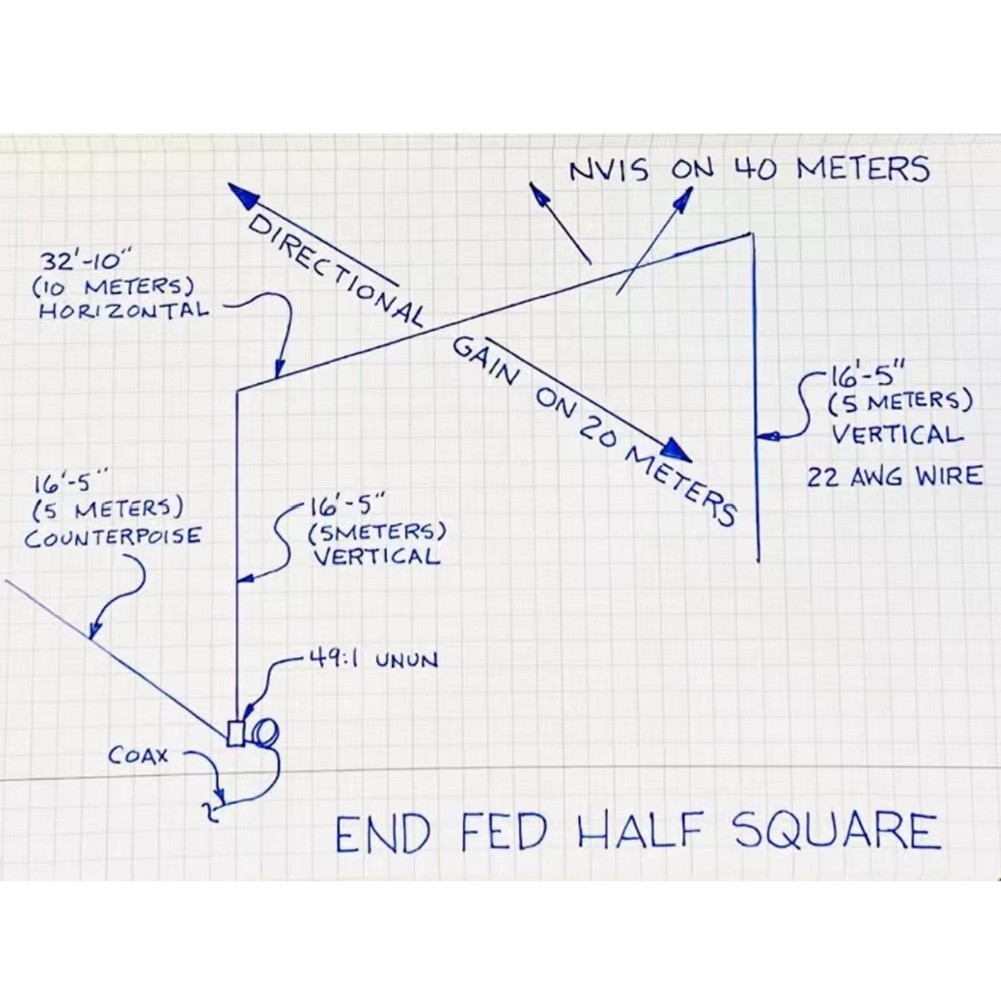 NVIS ON 40 METERS
DIRECTIONAL
GAIN ON 20 METERS
32'-10"
(10 METERS)
HORIZONTAL
16'-5"
(5 METERS)
VERTICAL
22 AWG WIRE
16'-5"
(5 METERS)
COUNTERPOISE
16'-5"
(5METERS)
VERTICAL
49:1 UNUN
COAX
END FED HALF SQUARE